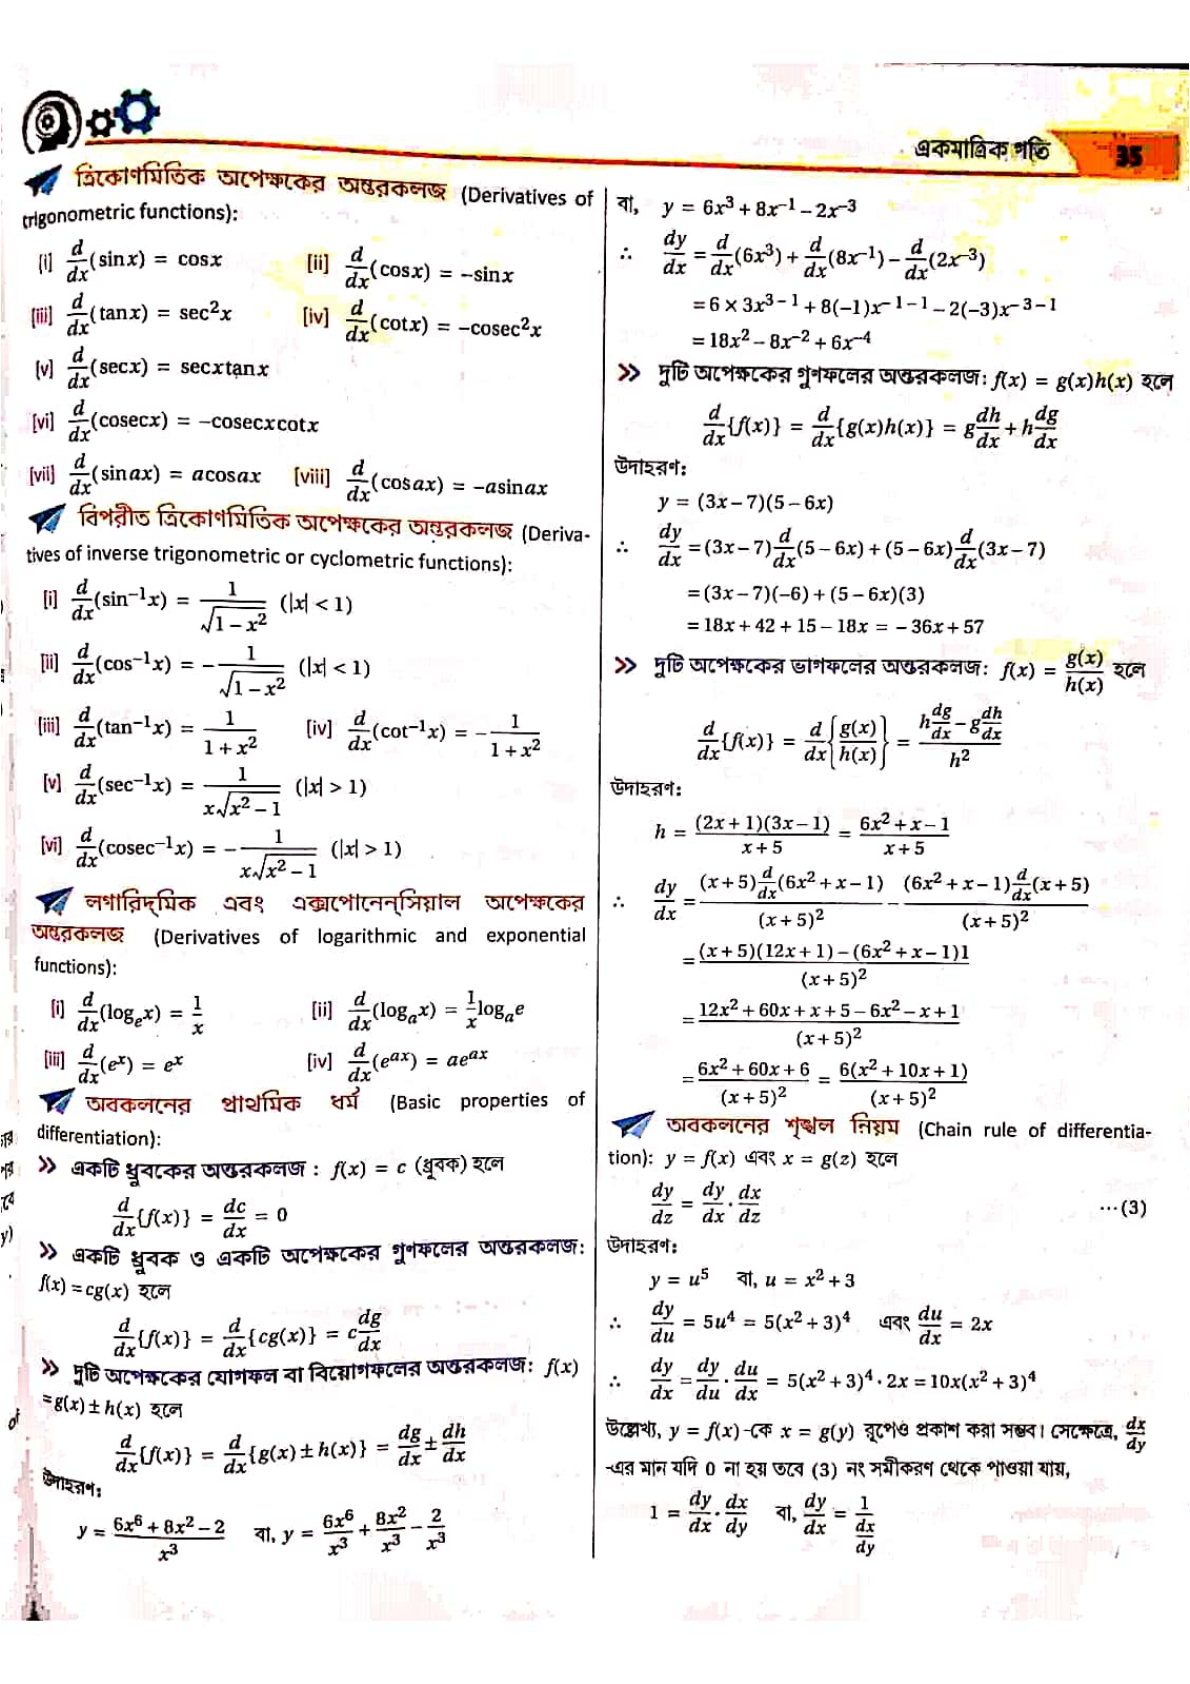 একমাত্রিক গতি 35
ত্রিকোণমিতিক অপেক্ষকের অন্তরকলজ (Derivatives of
trigonometric functions):
[i] d/dx(sinx) = cosx [ii] d/dx(cosx) = –sinx
[iii] d/dx(tanx) = sec²x [iv] d/dx(cotx) = –cosec²x
[v] d/dx(secx) = secxtanx
[vi] d/dx(cosecx) = –cosecxcotx
[vii] d/dx(sinax) = acosax [viii] d/dx(cosax) = –asinax
বিপরীত ত্রিকোণমিতিক অপেক্ষকের অন্তরকলজ (Deriva-
tives of inverse trigonometric or cyclometric functions):
[i] d/dx(sin⁻¹x) = 1/√(1 – x²) (|x| < 1)
[ii] d/dx(cos⁻¹x) = – 1/√(1 – x²) (|x| < 1)
[iii] d/dx(tan⁻¹x) = 1/(1 + x²) [iv] d/dx(cot⁻¹x) = – 1/(1 + x²)
[v] d/dx(sec⁻¹x) = 1/(x√(x² – 1)) (|x| > 1)
[vi] d/dx(cosec⁻¹x) = – 1/(x√(x² – 1)) (|x| > 1)
লগারিদ্‌মিক এবং এক্সপোনেন্‌সিয়াল অপেক্ষকের
অন্তরকলজ (Derivatives of logarithmic and exponential
functions):
[i] d/dx(logₑx) = 1/x [ii] d/dx(logₐx) = 1/x logₐe
[iii] d/dx(eˣ) = eˣ [iv] d/dx(eᵃˣ) = aeᵃˣ
অবকলনের প্রাথমিক ধর্ম (Basic properties of
differentiation):
>> একটি ধ্রুবকের অন্তরকলজ : f(x) = c (ধ্রুবক) হলে
d/dx{f(x)} = dc/dx = 0
>> একটি ধ্রুবক ও একটি অপেক্ষকের গুণফলের অন্তরকলজ:
f(x) = cg(x) হলে
d/dx{f(x)} = d/dx{cg(x)} = c dg/dx
>> দুটি অপেক্ষকের যোগফল বা বিয়োগফলের অন্তরকলজ: f(x)
= g(x) ± h(x) হলে
d/dx{f(x)} = d/dx{g(x) ± h(x)} = dg/dx ± dh/dx
উদাহরণ:
y = (6x⁶ + 8x² – 2)/x³ বা, y = 6x⁶/x³ + 8x²/x³ – 2/x³
বা, y = 6x³ + 8x⁻¹ – 2x⁻³
∴ dy/dx = d/dx(6x³) + d/dx(8x⁻¹) – d/dx(2x⁻³)
= 6 × 3x³⁻¹ + 8(–1)x⁻¹⁻¹ – 2(–3)x⁻³⁻¹
= 18x² – 8x⁻² + 6x⁻⁴
>> দুটি অপেক্ষকের গুণফলের অন্তরকলজ: f(x) = g(x)h(x) হলে
d/dx{f(x)} = d/dx{g(x)h(x)} = g dh/dx + h dg/dx
উদাহরণ:
y = (3x – 7)(5 – 6x)
∴ dy/dx = (3x – 7) d/dx(5 – 6x) + (5 – 6x) d/dx(3x – 7)
= (3x – 7)(–6) + (5 – 6x)(3)
= 18x + 42 + 15 – 18x = – 36x + 57
>> দুটি অপেক্ষকের ভাগফলের অন্তরকলজ: f(x) = g(x)/h(x) হলে
d/dx{f(x)} = d/dx{g(x)/h(x)} = (h dg/dx – g dh/dx)/h²
উদাহরণ:
h = (2x + 1)(3x – 1)/(x + 5) = (6x² + x – 1)/(x + 5)
∴ dy/dx = (x + 5) d/dx(6x² + x – 1)/(x + 5)² – (6x² + x – 1) d/dx(x + 5)/(x + 5)²
= ((x + 5)(12x + 1) – (6x² + x – 1)1)/(x + 5)²
= (12x² + 60x + x + 5 – 6x² – x + 1)/(x + 5)²
= (6x² + 60x + 6)/(x + 5)² = 6(x² + 10x + 1)/(x + 5)²
অবকলনের শৃঙ্খল নিয়ম (Chain rule of differentia-
tion): y = f(x) এবং x = g(z) হলে
dy/dz = dy/dx · dx/dz ⋯(3)
উদাহরণ:
y = u⁵ বা, u = x² + 3
∴ dy/du = 5u⁴ = 5(x² + 3)⁴ এবং du/dx = 2x
∴ dy/dx = dy/du · du/dx = 5(x² + 3)⁴ · 2x = 10x(x² + 3)⁴
উল্লেখ্য, y = f(x) -কে x = g(y) রূপেও প্রকাশ করা সম্ভব। সেক্ষেত্রে, dx/dy
-এর মান যদি 0 না হয় তবে (3) নং সমীকরণ থেকে পাওয়া যায়,
1 = dy/dx · dx/dy বা, dy/dx = 1/(dx/dy)